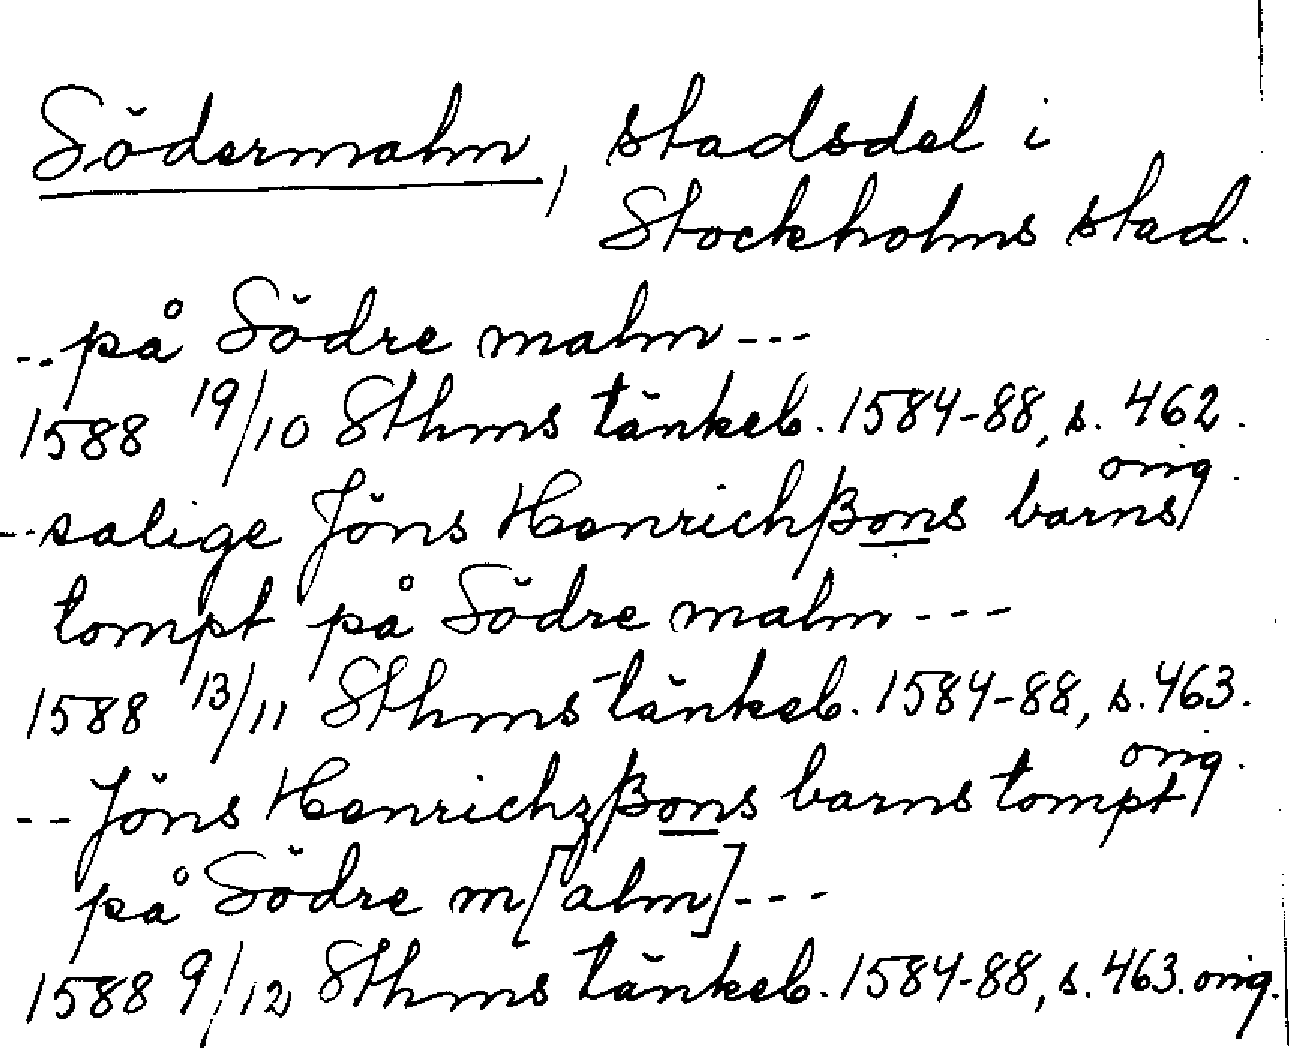 Södermalm, stadsdel i
Stockholms stad.
-- på Södre malm ---
1588 19/10 Sthms tänkeb. 1584-88, s. 462.
orig.
-- salige Jöns Henrichßons barns
tompt på Södre malm ---
1588 13/11 Sthms tänkeb. 1584-88, s. 463.
orig.
-- Jöns Henrichzßons barns tompt
på Södre m[alm] ---
1588 9/12 Sthms tänkeb. 1584-88, s. 463. orig.